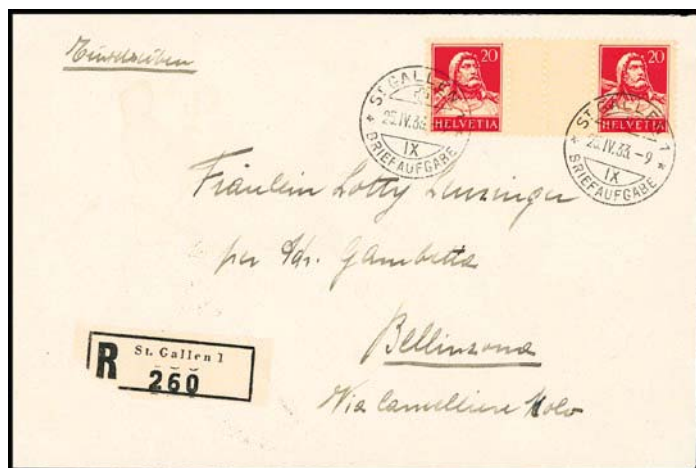 Einschreiben
20
20
HELVETIA
HELVETIA
ST. GALLEN
25.IV.33
IX
BRIEFAUFGABE
ST. GALLEN 1
25.IV.33.-9
IX
BRIEFAUFGABE
Fräulein Lotty
per Adr. Gambetta
Bellinzona
Via
R St. Gallen 1
260